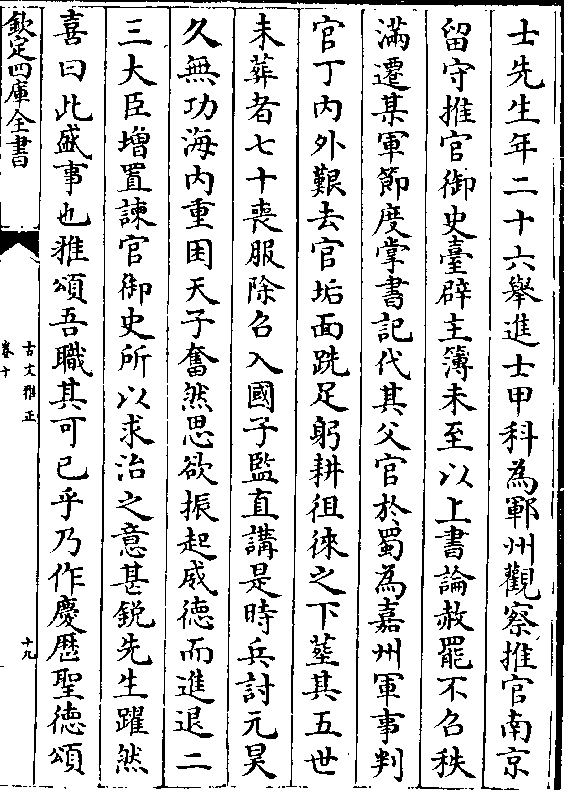 士先生年二十六舉進士甲科為鄆州觀察推官南京
留守推官御史臺辟主簿未至以上書論赦罷不召秩
滿遷某軍節度掌書記代其父官於蜀為嘉州軍事判
官丁內外艱去官垢面跣足躬耕徂徠之下塟其五世
未葬者七十喪服除召入國子監直講是時兵討元昊
久無功海內重困天子奮然思欲振起威德而進退二
三大臣增置諫官御史所以求治之意甚銳先生躍然
喜曰此盛事也雅頌吾職其可已乎乃作慶厯聖德頌
欽定四庫全書
古文雅正
卷十
十九